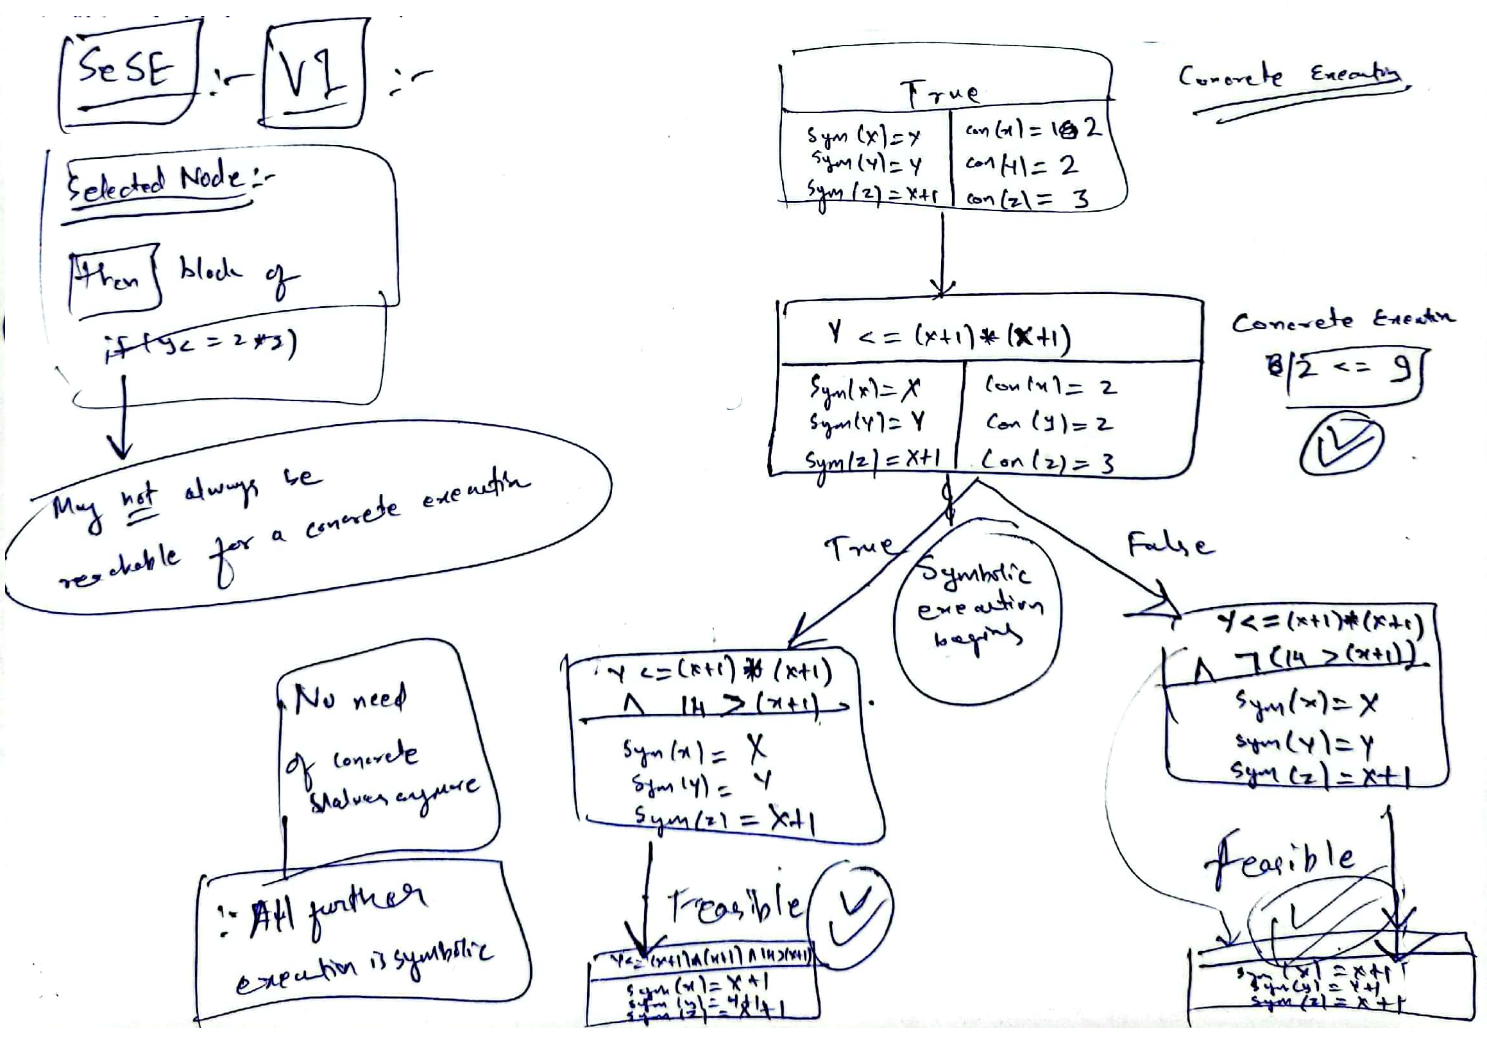 SeSE :- V1 :-
Selected Node :-
then block of
if (y <= z*z)
May not always be
reachable for a concrete execution
No need
of concrete
anymore
:- All further
execution is symbolic
Concrete Execution
True
Sym(x)=x con(x)= 2
Sym(y)=y con(y)= 2
Sym(z)=x+1 con(z)= 3
Y <= (x+1)*(x+1)
Sym(x)=X Con(x)= 2
Sym(y)=Y Con(y)=2
Sym(z)=X+1 Con(z)=3
Concrete Execution
2 <= 9
True
False
Symbolic
execution
begins
Y<=(x+1)*(x+1)
∧ 14 > (x+1)
Sym(x)= X
Sym(y)= Y
Sym(z)= X+1
Feasible
Y<=(x+1)*(x+1) ∧ 14>(x+1)
Sym(x)=X+1
Sym(y)=Y+1
Sym(z)=X+1
Y<=(x+1)*(x+1)
∧ ¬(14 > (x+1))
Sym(x)=X
Sym(y)=Y
Sym(z)=X+1
Feasible
Sym(x)=X+1
Sym(y)=Y+1
Sym(z)=X+1